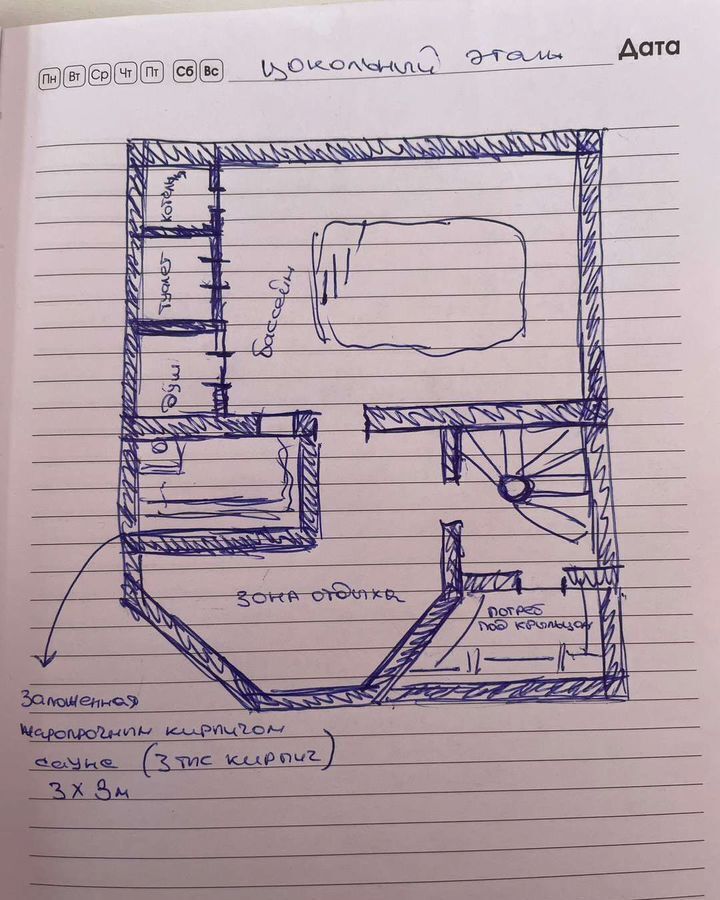 Пн Вт Ср Чт Пт Сб Вс цокольный этаж Дата
котель
туалет
душ
бассейн
зона отдыха
погреб
под крыльцом
Заложенная
жаропрочным кирпичом
сауна (3 тыс кирпич)
3 х 3м